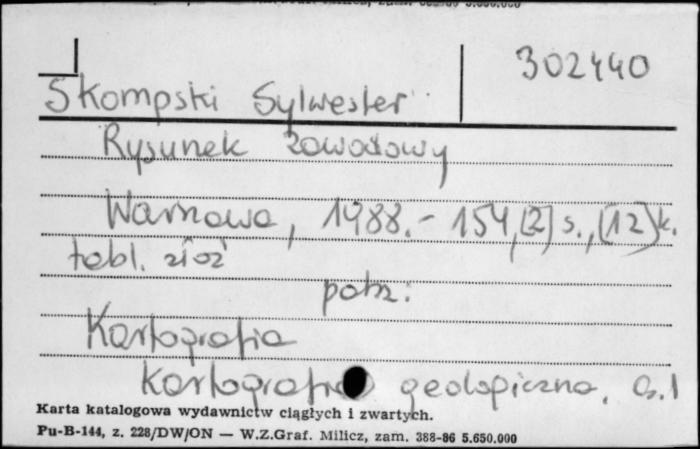 302440
Skompski Sylwester
Rysunek zawodowy
Warszawa, 1988. - 154, [2] s., [12] k.
tabl. złoż
patrz:
Kartografia
Kartografia geologiczna. Cz. 1
Karta katalogowa wydawnictw ciągłych i zwartych.
Pu-B-144, z. 228/DW/ON — W.Z.Graf. Milicz, zam. 388-86 5.650.000